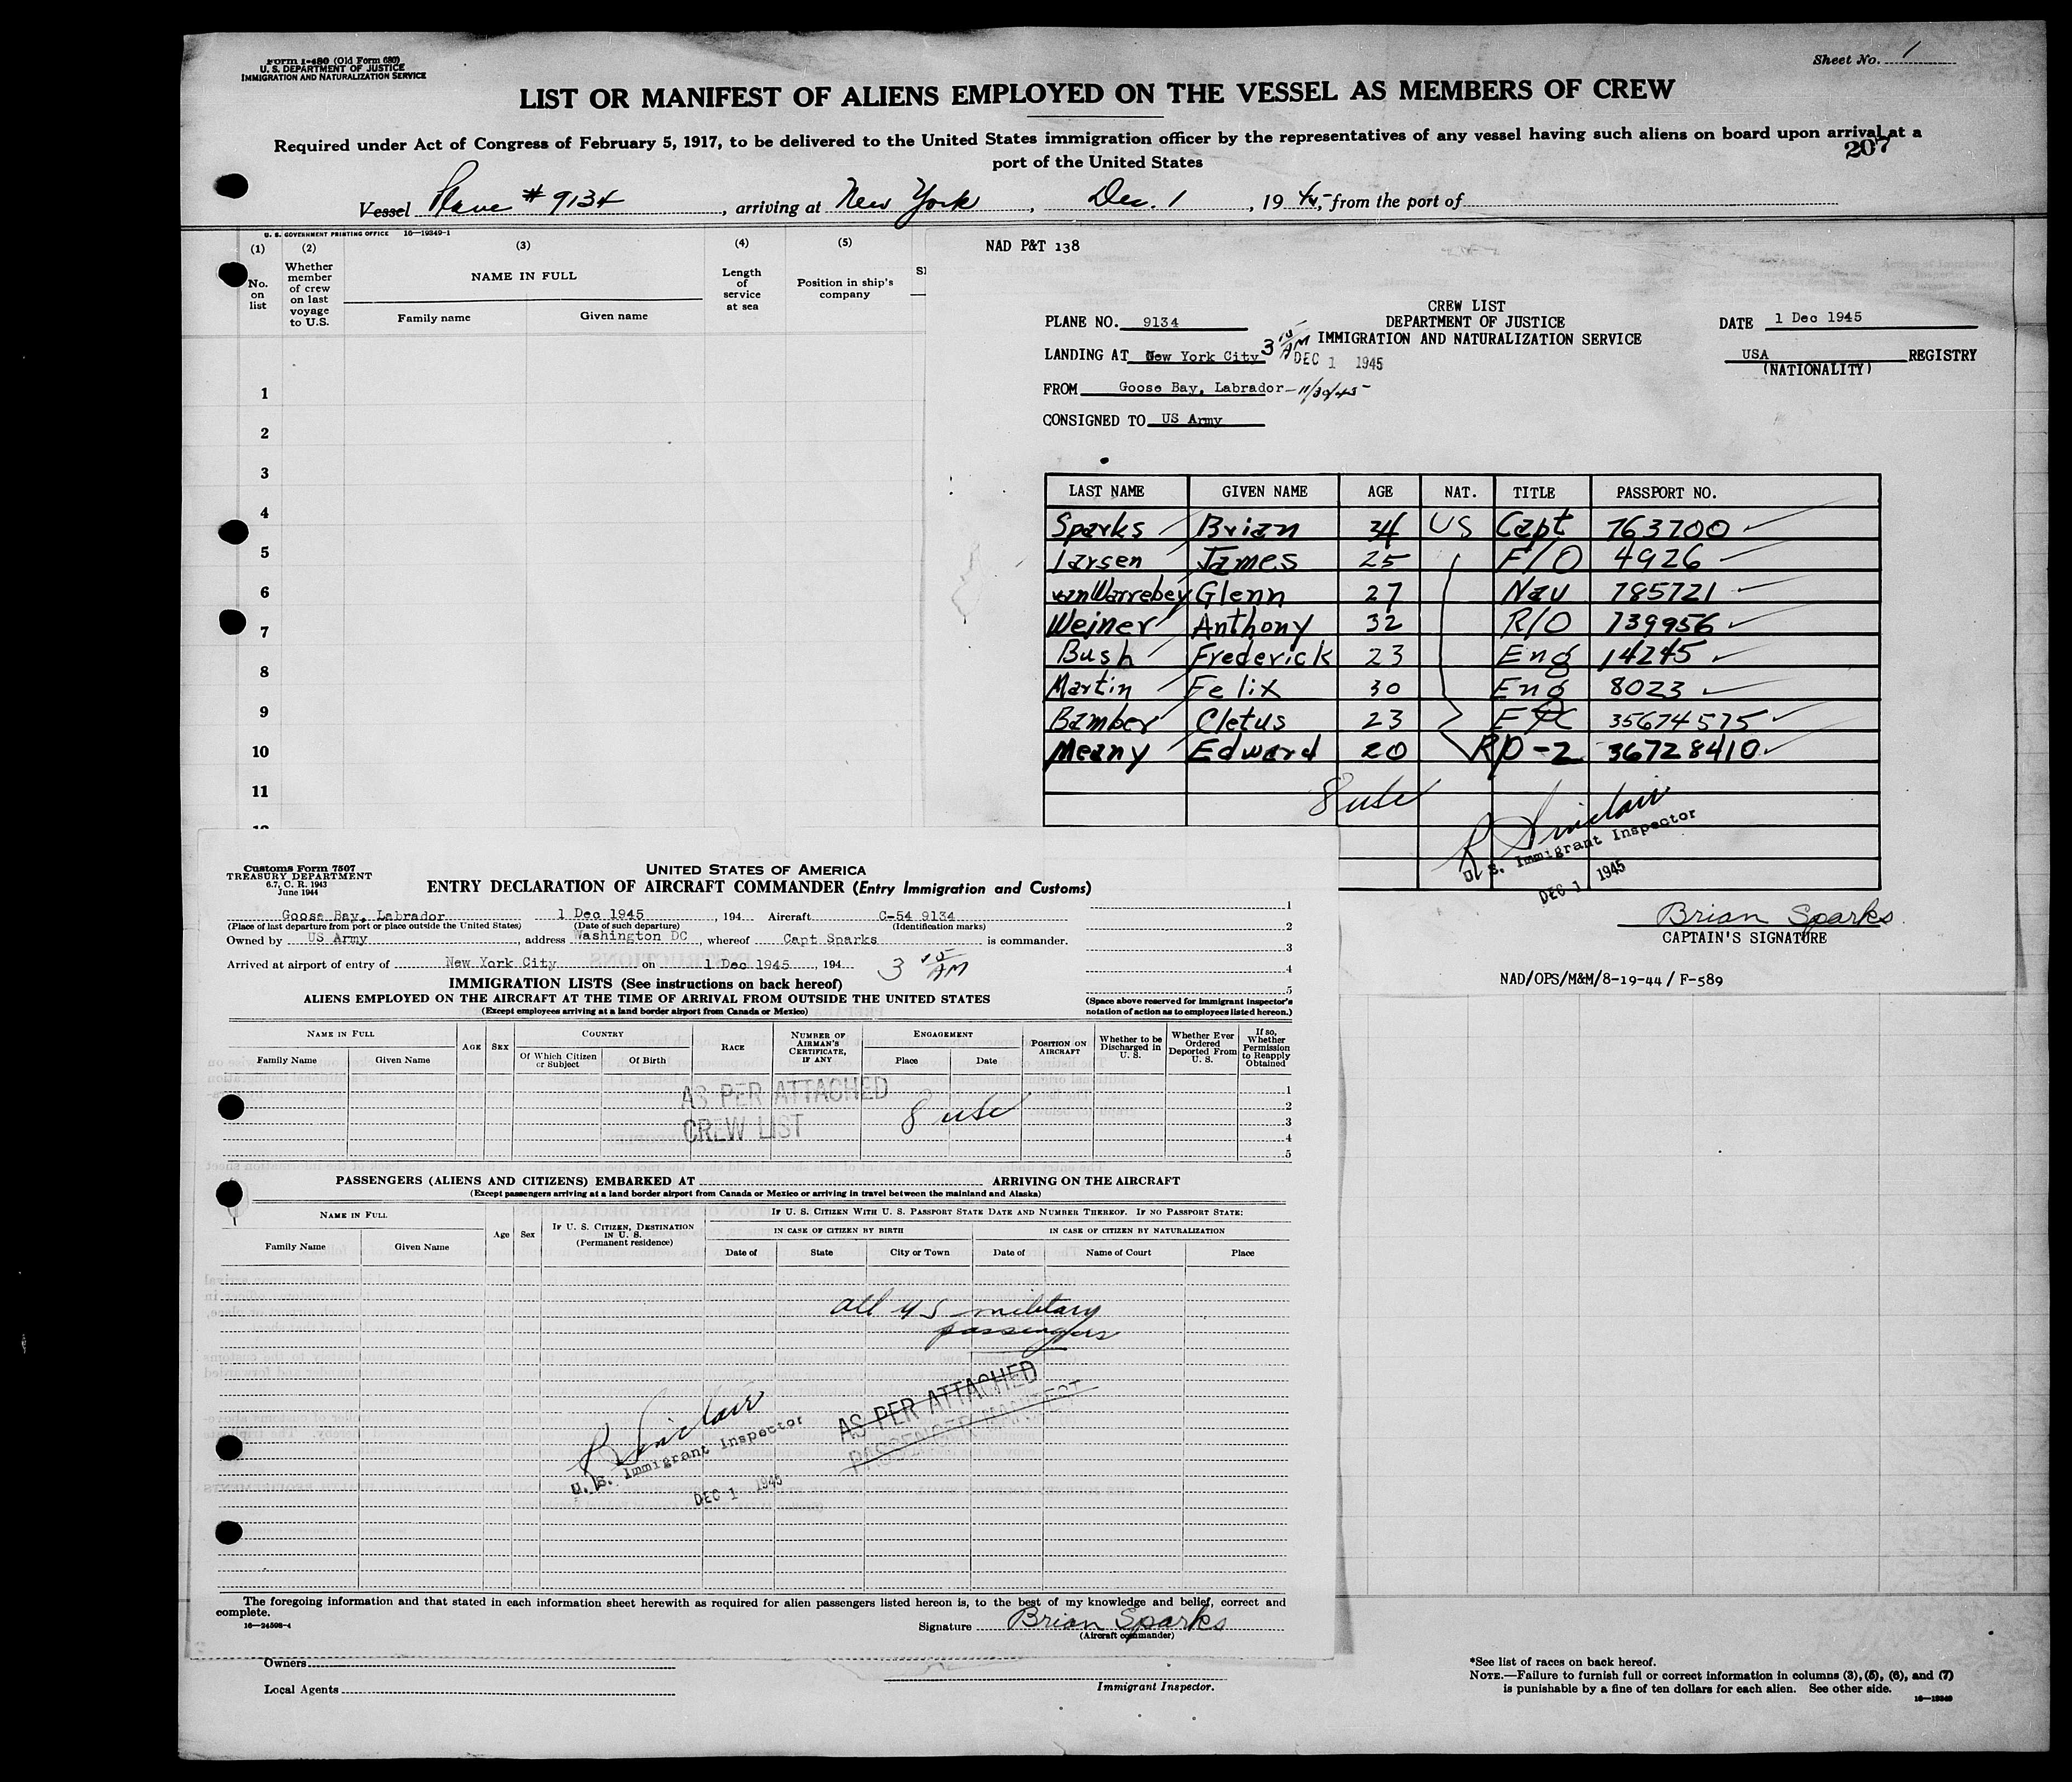 Form I-480 (Old Form 680)
U. S. DEPARTMENT OF JUSTICE
IMMIGRATION AND NATURALIZATION SERVICE
Sheet No. 1
LIST OR MANIFEST OF ALIENS EMPLOYED ON THE VESSEL AS MEMBERS OF CREW
Required under Act of Congress of February 5, 1917, to be delivered to the United States immigration officer by the representatives of any vessel having such aliens on board upon arrival at a
port of the United States
207
Vessel Plane # 9134, arriving at New York, Dec. 1, 1945, from the port of
U. S. GOVERNMENT PRINTING OFFICE 16-19349-1
(1) (2) (3) (4) (5)
No. on list
Whether member of crew on last voyage to U.S.
NAME IN FULL
Family name Given name
Length of service at sea
Position in ship's company
1
2
3
4
5
6
7
8
9
10
11
NAD P&T 138
CREW LIST
DEPARTMENT OF JUSTICE
IMMIGRATION AND NATURALIZATION SERVICE
PLANE NO. 9134
DATE 1 Dec 1945
LANDING AT New York City 3 15 AM DEC 1 1945
USA REGISTRY
(NATIONALITY)
FROM Goose Bay, Labrador - 11/30/45
CONSIGNED TO US Army
LAST NAME GIVEN NAME AGE NAT. TITLE PASSPORT NO.
Sparks Brian 34 US Capt 763700
Larsen James 25 F/O 4926
vanWarrebey Glenn 27 Nav 785721
Weiner Anthony 32 R/O 739956
Bush Frederick 23 Eng 14245
Martin Felix 30 Eng 8023
Bamber Cletus 23 35674575
Meany Edward 20 RP-2 36728410
8 usc
R Sinclair
U. S. Immigrant Inspector
DEC 1 1945
Brian Sparks
CAPTAIN'S SIGNATURE
NAD/OPS/M&M/8-19-44 / F-589
Customs Form 7507
TREASURY DEPARTMENT
6.7, C. R. 1943
June 1944
UNITED STATES OF AMERICA
ENTRY DECLARATION OF AIRCRAFT COMMANDER (Entry Immigration and Customs)
Goose Bay, Labrador 1 Dec 1945, 194 Aircraft C-54 9134
(Place of last departure from port or place outside the United States) (Date of such departure) (Identification marks)
Owned by US Army, address Washington DC, whereof Capt Sparks is commander.
Arrived at airport of entry of New York City on 1 Dec 1945, 194 3 15 AM
1
2
3
4
5
IMMIGRATION LISTS (See instructions on back hereof)
ALIENS EMPLOYED ON THE AIRCRAFT AT THE TIME OF ARRIVAL FROM OUTSIDE THE UNITED STATES
(Except employees arriving at a land border airport from Canada or Mexico)
(Space above reserved for immigrant inspector's notation of action as to employees listed hereon.)
NAME IN FULL
Family Name Given Name
AGE SEX
COUNTRY
Of Which Citizen or Subject Of Birth
RACE
NUMBER OF AIRMAN'S CERTIFICATE, IF ANY
ENGAGEMENT
Place Date
POSITION ON AIRCRAFT
Whether to be Discharged in U. S.
Whether Ever Ordered Deported From U. S.
If so, Whether Permission to Reapply Obtained
1
2
3
4
5
AS PER ATTACHED
CREW LIST
8 usc
PASSENGERS (ALIENS AND CITIZENS) EMBARKED AT ARRIVING ON THE AIRCRAFT
(Except passengers arriving at a land border airport from Canada or Mexico or arriving in travel between the mainland and Alaska)
NAME IN FULL
Family Name Given Name
Age Sex
IF U. S. CITIZEN, DESTINATION IN U. S. (Permanent residence)
IF U. S. CITIZEN WITH U. S. PASSPORT STATE DATE AND NUMBER THEREOF. IF NO PASSPORT STATE:
IN CASE OF CITIZEN BY BIRTH IN CASE OF CITIZEN BY NATURALIZATION
Date of State City or Town Date of Name of Court Place
all US military
passengers
AS PER ATTACHED
PASSENGER MANIFEST
R Sinclair
U. S. Immigrant Inspector
DEC 1 1945
The foregoing information and that stated in each information sheet herewith as required for alien passengers listed hereon is, to the best of my knowledge and belief, correct and
complete.
16—24508-4
Signature Brian Sparks
(Aircraft commander)
Owners
Local Agents
Immigrant Inspector.
*See list of races on back hereof.
NOTE.—Failure to furnish full or correct information in columns (3), (5), (6), and (7)
is punishable by a fine of ten dollars for each alien. See other side.
16—19349